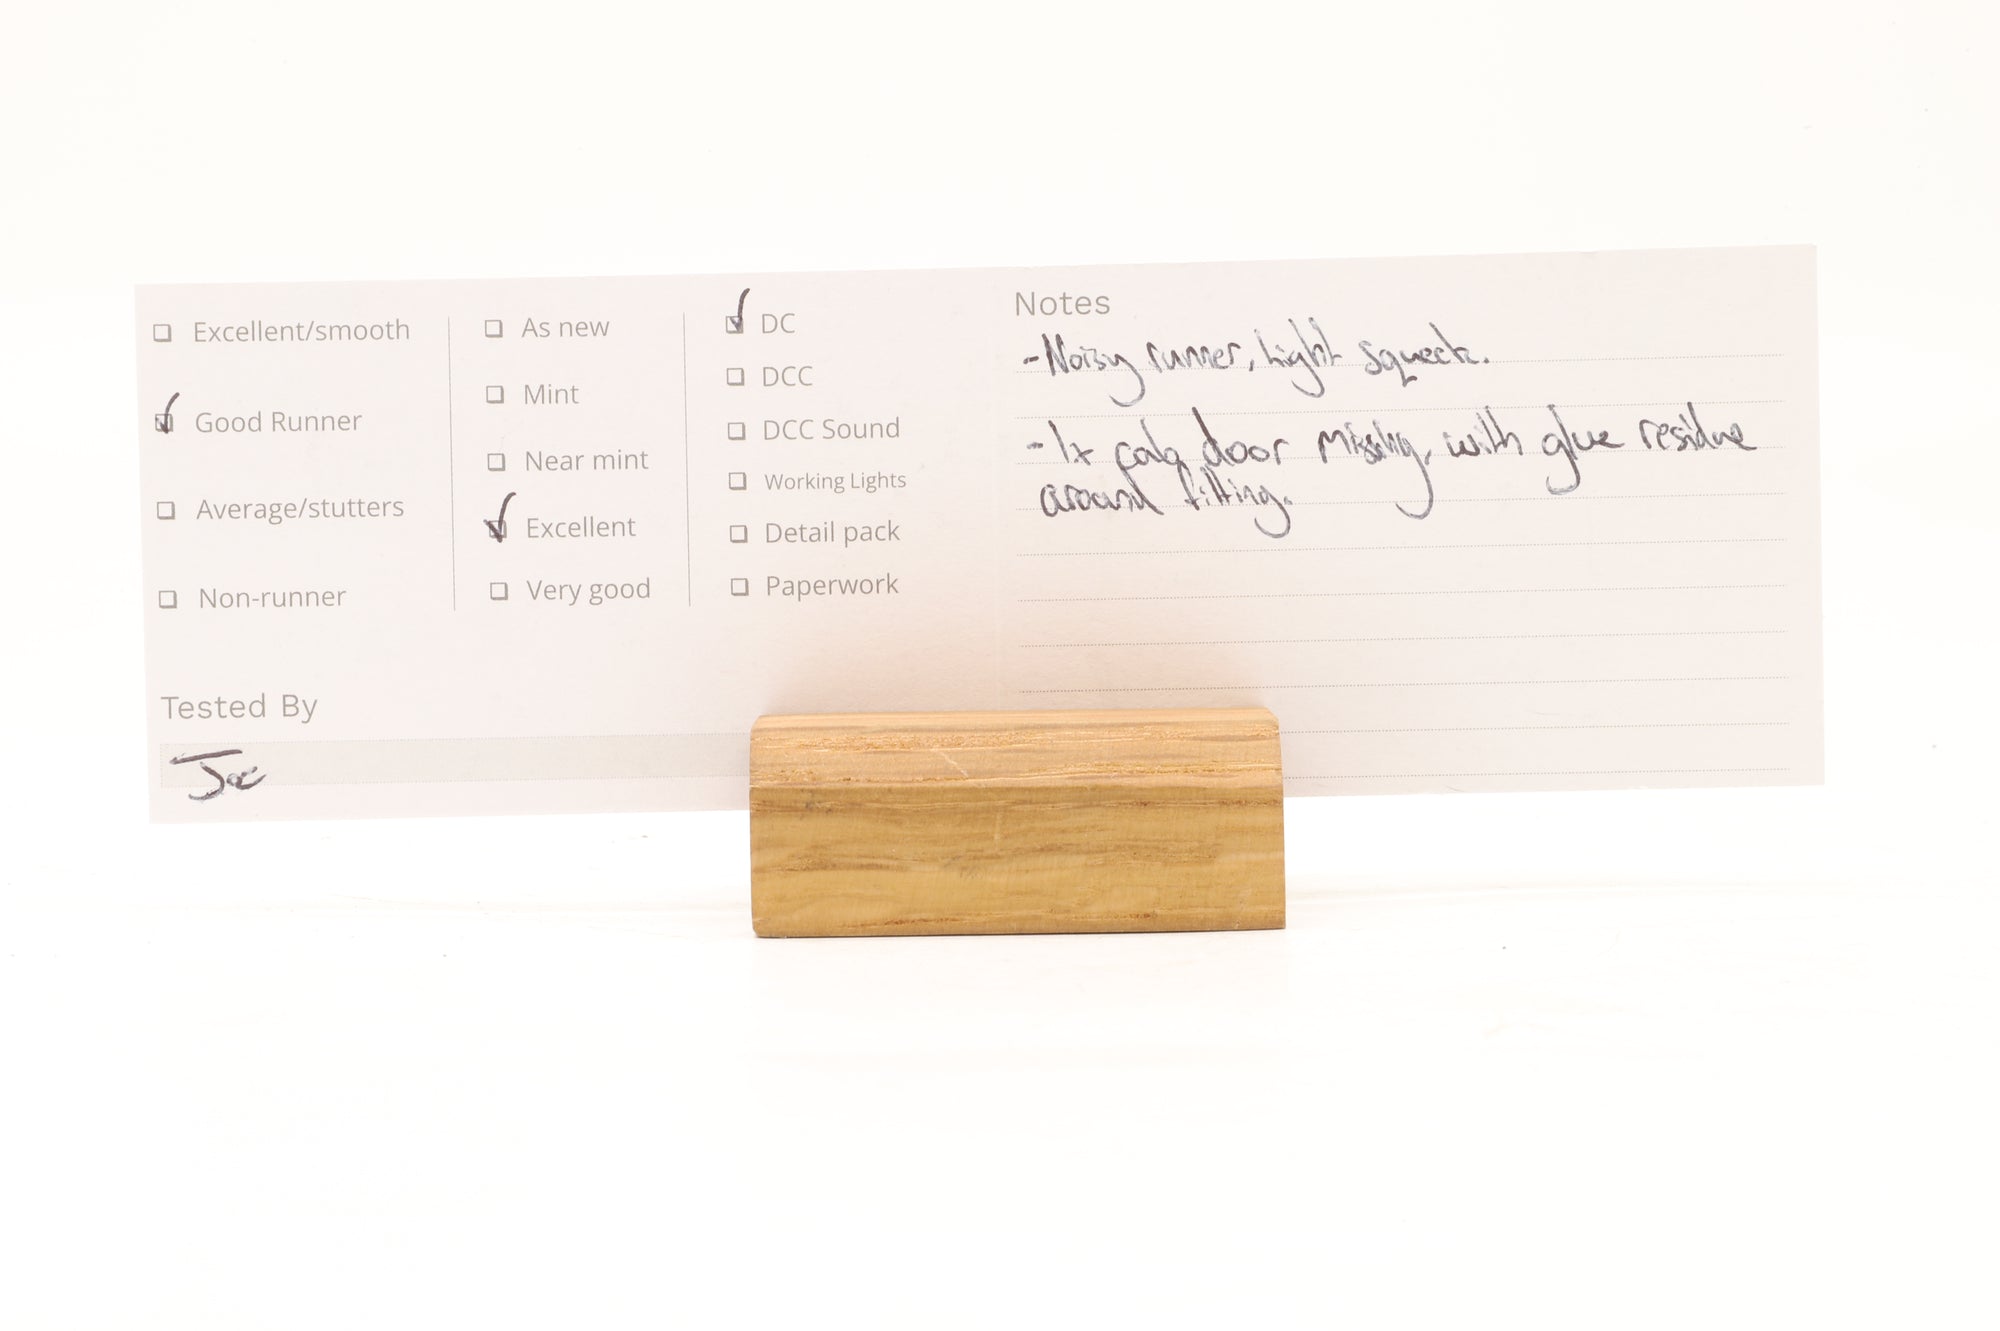 Excellent/smooth
Good Runner
Average/stutters
Non-runner
As new
Mint
Near mint
Excellent
Very good
DC
DCC
DCC Sound
Working Lights
Detail pack
Paperwork
Tested By
Joe
Notes
-Noisy runner, light squeek.
-1x door missing, with glue residue
around fitting.